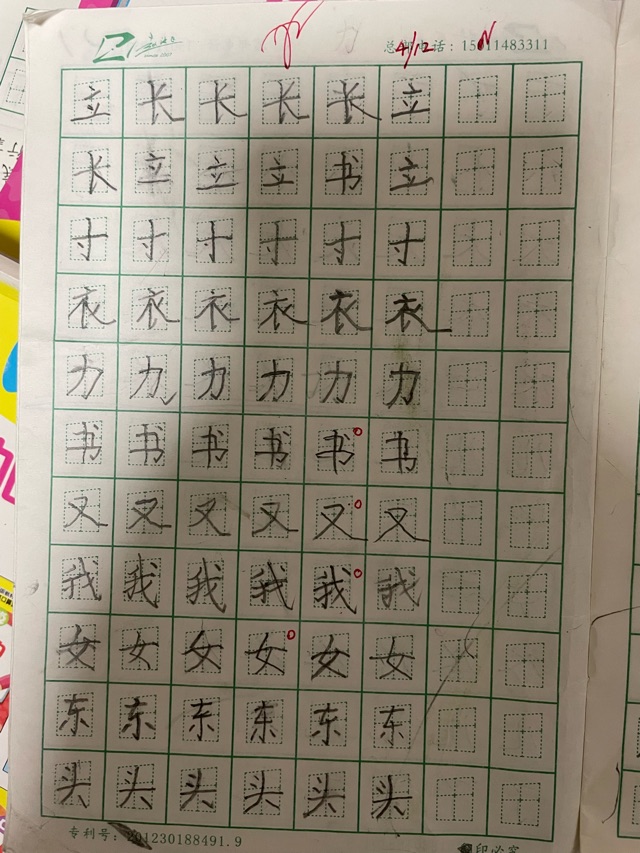 4/12
立长长长长立
长立立立书立
寸寸寸寸寸寸
衣衣衣衣衣衣
力力力力力力
书书书书书书
又又又又又又
我我我我我我
女女女女女女
东东东东东东
头头头头头头
专利号：201230188491.9